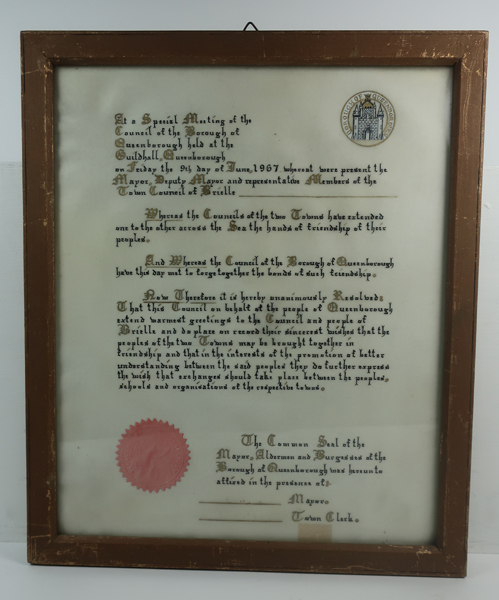 At a Special Meeting of the
Council of the Borough of
Queenborough held at the
Guildhall, Queenborough
on Friday the 9th day of June, 1967 whereat were present the
Mayor, Deputy Mayor and representative Members of the
Town Council of Brielle
Whereas the Councils of the two Towns have extended
one to the other across the Sea the hands of friendship of their
peoples.
And Whereas the Council of the Borough of Queenborough
have this day met to forge together the bonds of such friendship.
Now Therefore it is hereby unanimously Resolved:
That this Council on behalf of the people of Queenborough
extend warmest greetings to the Council and people of
Brielle and do place on record their sincerest wishes that the
peoples of the two Towns may be brought together in
friendship and that in the interests of the promotion of better
understanding between the said peoples they do further express
the wish that exchanges should take place between the peoples,
schools and organisations of the respective towns.
The Common Seal of the
Mayor, Aldermen and Burgesses of the
Borough of Queenborough was hereunto
affixed in the presence of:
Mayor.
Town Clerk.